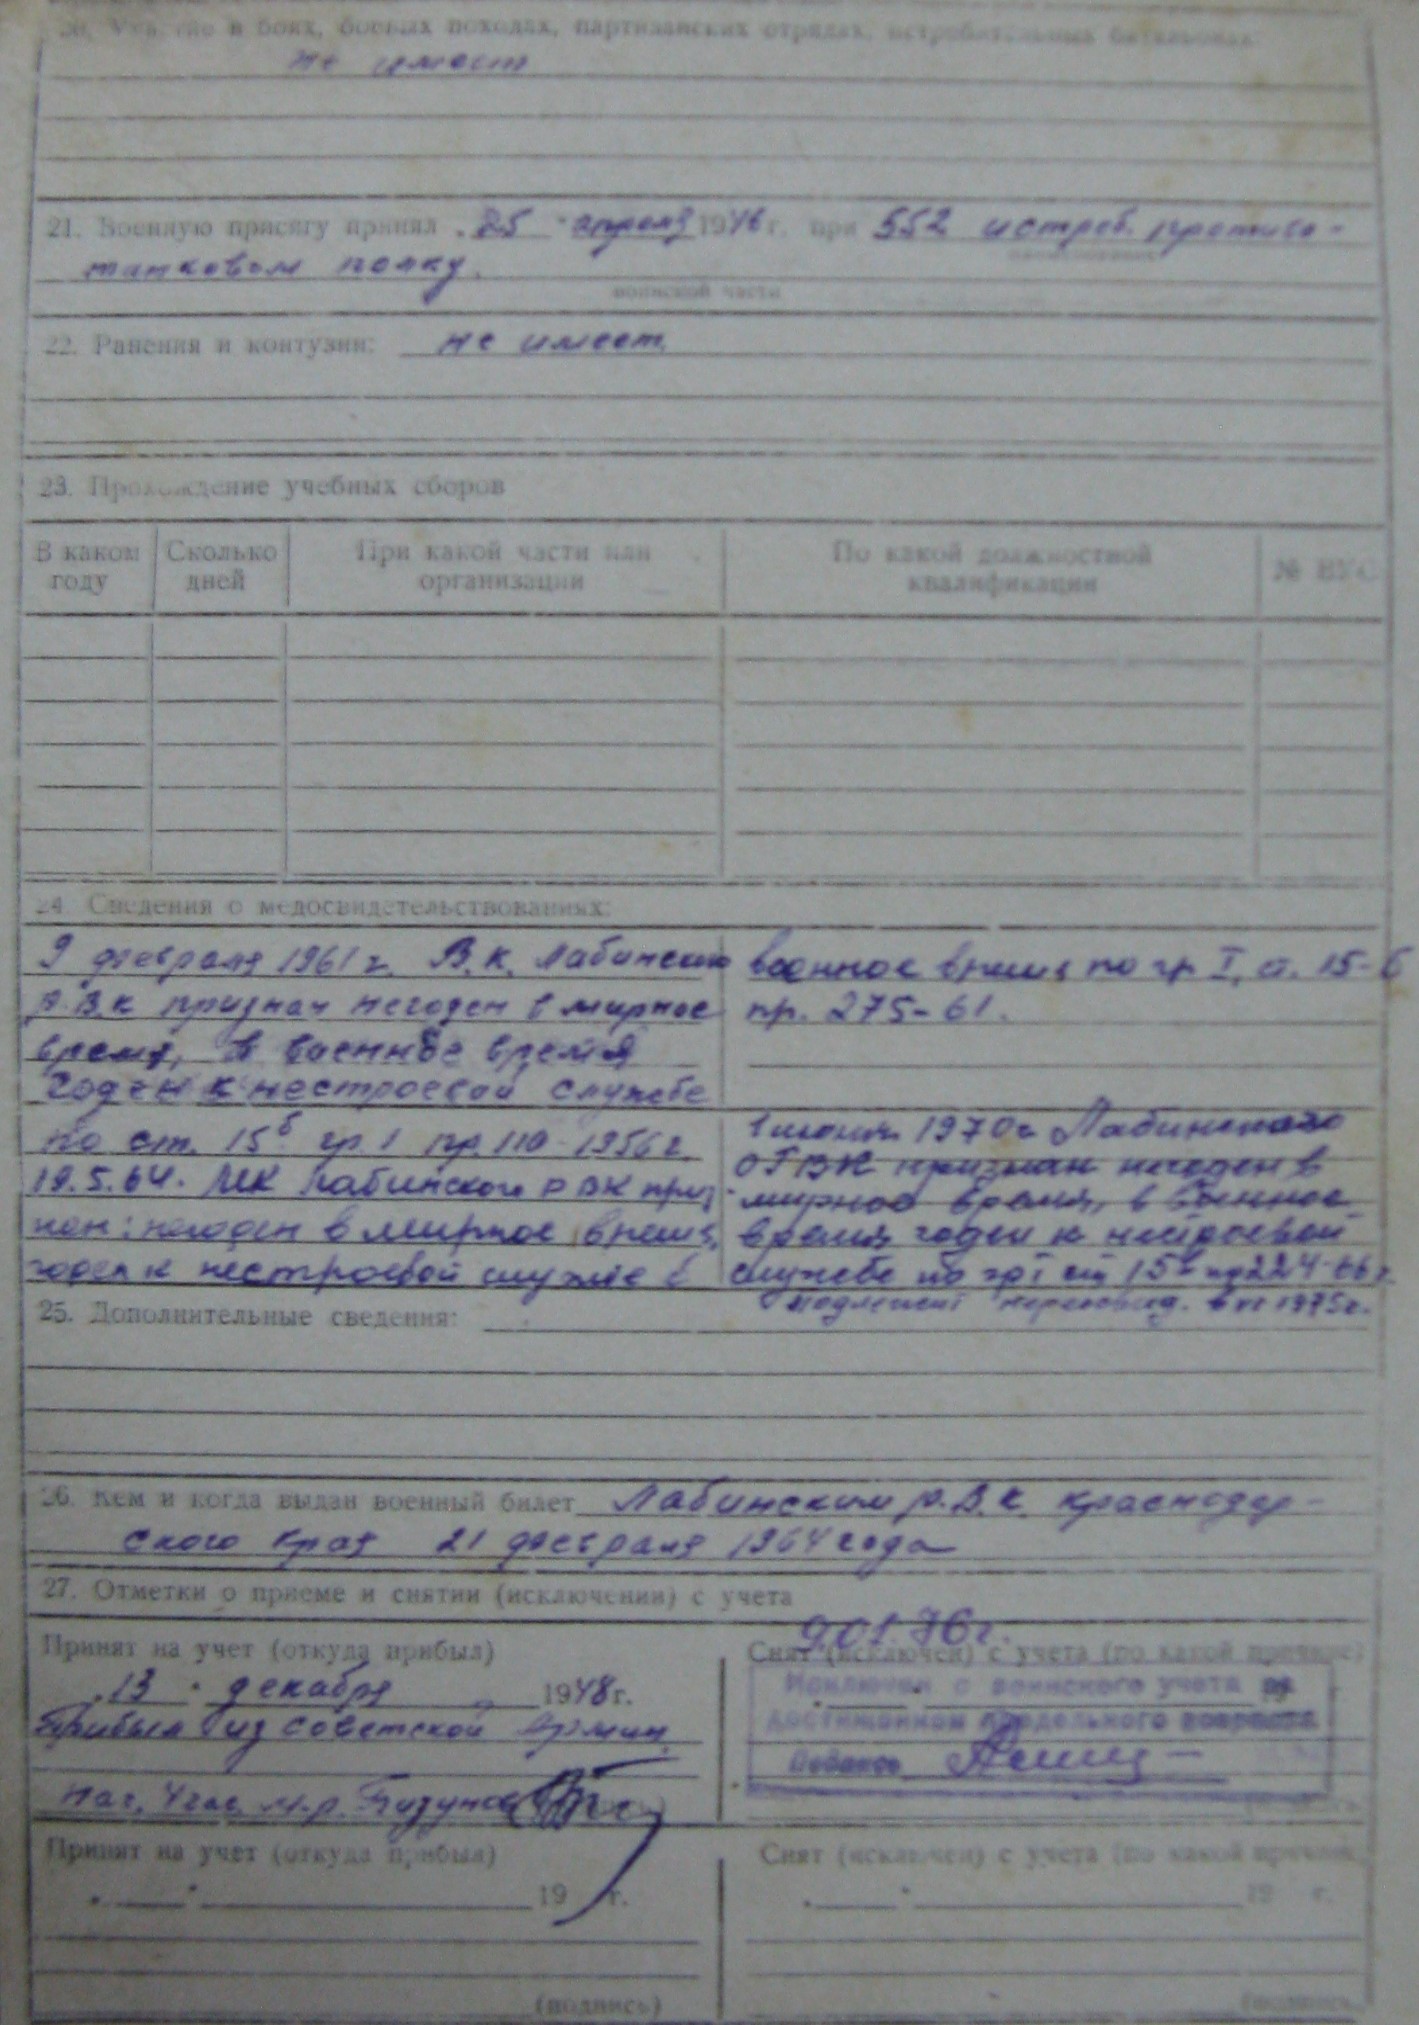 20. Участие в боях, боевых походах, партизанских отрядах, истребительных батальонах
не имеет
21. Военную присягу принял 25 апреля 1946 г. при 552 истреб. противо-
танковом полку.
воинской части
22. Ранения и контузии: не имеет
23. Прохождение учебных сборов
В каком году
Сколько дней
При какой части или организации
По какой должностной квалификации
№ ВУС
24. Сведения о медосвидетельствованиях:
9 февраля 1961 г. В.К. Лабинского
Р.В.К признан негоден в мирное
время, в военное время
годен к нестроевой службе
по ст. 15б гр. 1 пр. 110-1956 г.
19.5.64. МК Лабинского РВК приз-
нан: негоден в мирное время,
годен к нестроевой службе в
военное время по гр I, ст. 15-б
пр. 275-61.
1970 г Лабинского
ОГВК признан негоден в
мирное время, в военное
время годен к нестроевой
службе по гр I ст 15б пр 224-66 г.
подлежит переосвид. в 1975 г.
25. Дополнительные сведения:
26. Кем и когда выдан военный билет Лабинским р.В.К. Краснодар-
ского края 21 февраля 1964 года
27. Отметки о приеме и снятии (исключении) с учета
Принят на учет (откуда прибыл)
13 декабря 1948 г.
Прибыл из советской Армии
Нач. 4 час. м-р.
9.01.76 г.
Снят (исключен) с учета (по какой причине)
19
Исключен с воинского учета по
достижении предельного возраста
Принят на учет (откуда прибыл)
19 г.
(подпись)
Снят (исключен) с учета (по какой причине)
19 г.
(подпись)